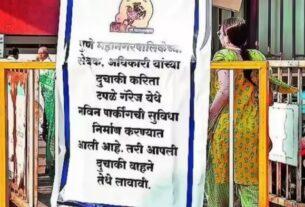 पुणे महानगरपालिकेच्या
सेवक, अधिकारी यांच्या
दुचाकी करिता
टपळे गॅरेज येथे
नविन पार्कींगची सुविधा
निर्माण करण्यात
आली आहे. तरी आपली
दुचाकी वाहने
तेथे लावावी.